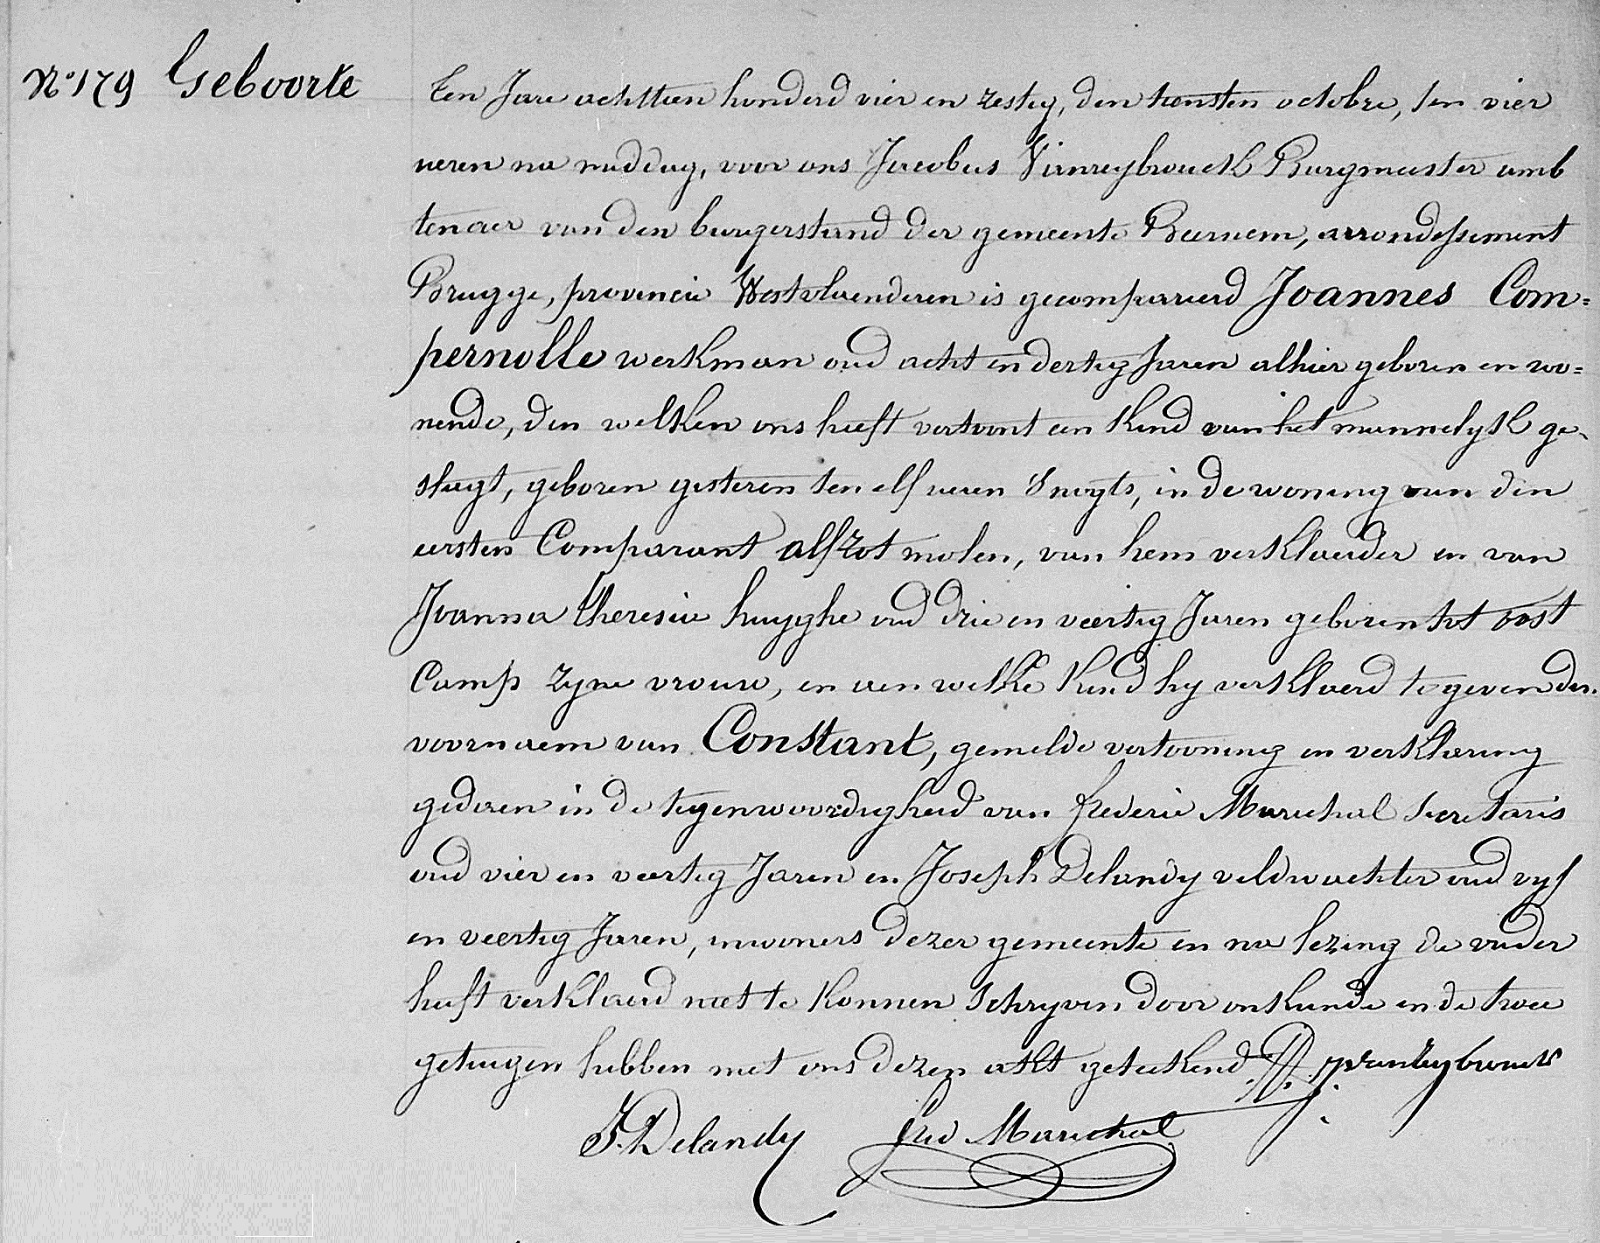 N° 179 Geboorte
Ten Jare achttien honderd vier en zestig, den tiensten octobre, ten vier
ueren na middag, voor ons Jacobus Vanreybrouck Burgmeester amb
tenaer van den burgerstand der gemeente Beernem, arrondissement
Brugge, provincie Westvlaenderen is gecompareerd Joannes Com=
pernolle werkman oud acht en dertig Jaren alhier geboren en wo=
nende, den welken ons heeft vertoont een Kind van het mannelyk ge-
slagt, geboren gisteren ten elf ueren Snagts, in de woning van den
eersten Comparant molen, van hem verklaerder en van
Joanna Theresia huyghe oud drie en veertig Jaren geboren tot oost
Camp zyne vrouw, en aen welke Kind hy verklaerd te geven den
voornaem van Constant, gemelde vertooning en verklaring
gedaen in de tegenwoordigheid van frederic Marechal Secretaris
oud vier en veertig Jaren en Joseph Delandy veldwachter oud vyf
en veertig Jaren, inwoners dezer gemeente en na lezing de vader
heeft verklaerd niet te Konnen Schryven door onkunde en de twee
getuigen hebben met ons dezen akt geteekend J. Vanreybrouck
J. Delandy fred Marechal